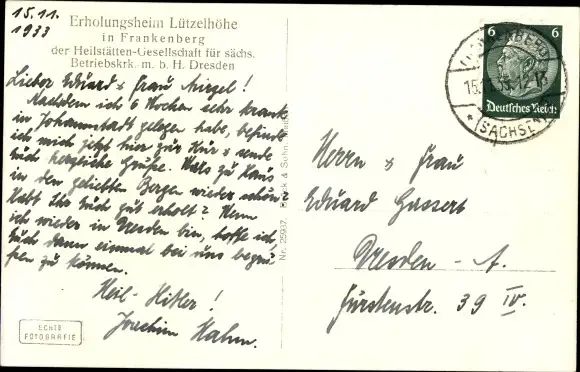 15.11.
1933
Erholungsheim Lützelhöhe
in Frankenberg
der Heilstätten-Gesellschaft für sächs.
Betriebskrk. m. b. H. Dresden
Lieber Eduard & Frau Mirzel!
Nachdem ich 6 Wochen sehr krank
in Johannstadt gelegen habe, befinde
ich mich jetzt hier zur Kur & sende
Euch herzliche Grüße. Wars zu Haus
in den geliebten Bergen wieder schön
Habt Ihr Euch gut erholt? Wenn
ich wieder in Dresden bin, hoffe ich,
Euch dann einmal bei uns begrü
ßen zu können.
Heil-Hitler!
Joachim Hahn.
ECHTE
FOTOGRAFIE
Nr. 25937. & Sohn,
6 6
Deutsches Reich
FRANKENBERG
15. 12-13
* (SACHSEN)
Herrn & Frau
Eduard Gassert
Dresden-A.
Fürstenstr. 39 IV.